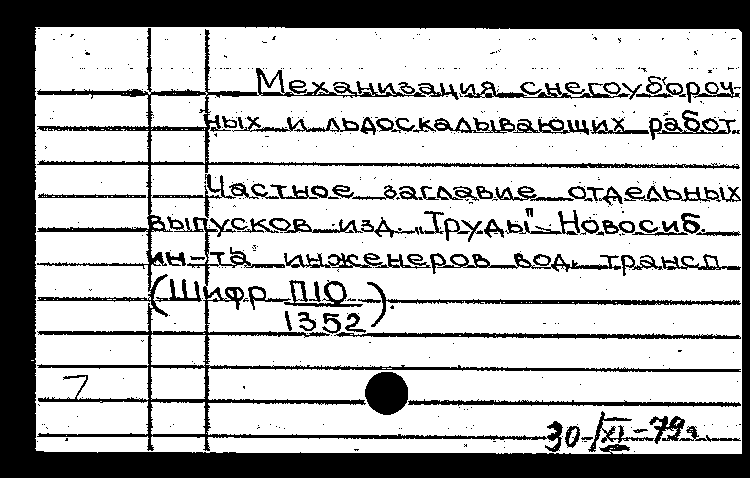 Механизация снегоубороч-
ных и льдоскалывающих работ.
Частное заглавие отдельных
выпусков изд. „Труды" - Новосиб.
ин-та инженеров вод. трансп.
(Шифр П10/1352).
7
30-/XI-79г.